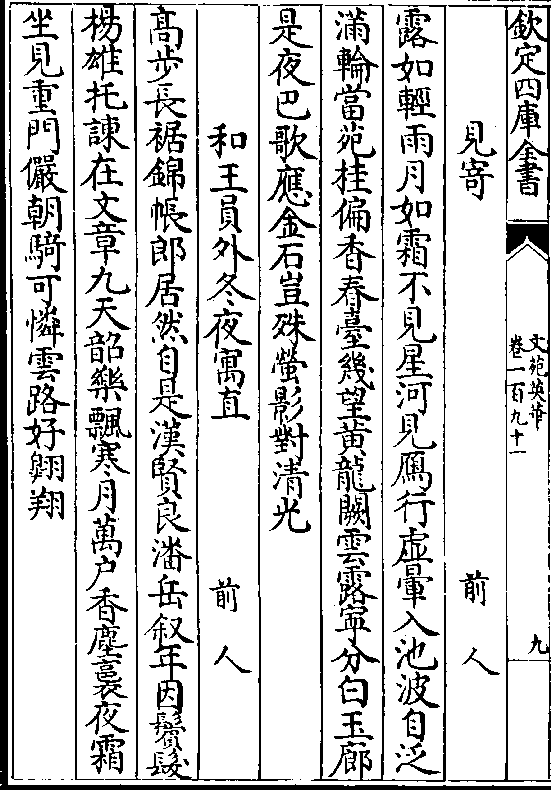 欽定四庫全書
文苑英華
卷一百九十一
九
見寄 前人
露如輕雨月如霜不見星河見鴈行虛暈入池波自泛
滿輪當苑桂偏香春臺幾望黃龍闕雲露寧分白玉廊
是夜巴歌應金石豈殊螢影對清光
和王員外冬夜寓直 前人
高步長裾錦帳郎居然自是漢賢良潘岳叙年因鬢髮
楊雄托諫在文章九天韶樂飄寒月萬户香塵裛夜霜
坐見重門儼朝騎可憐雲路好翺翔